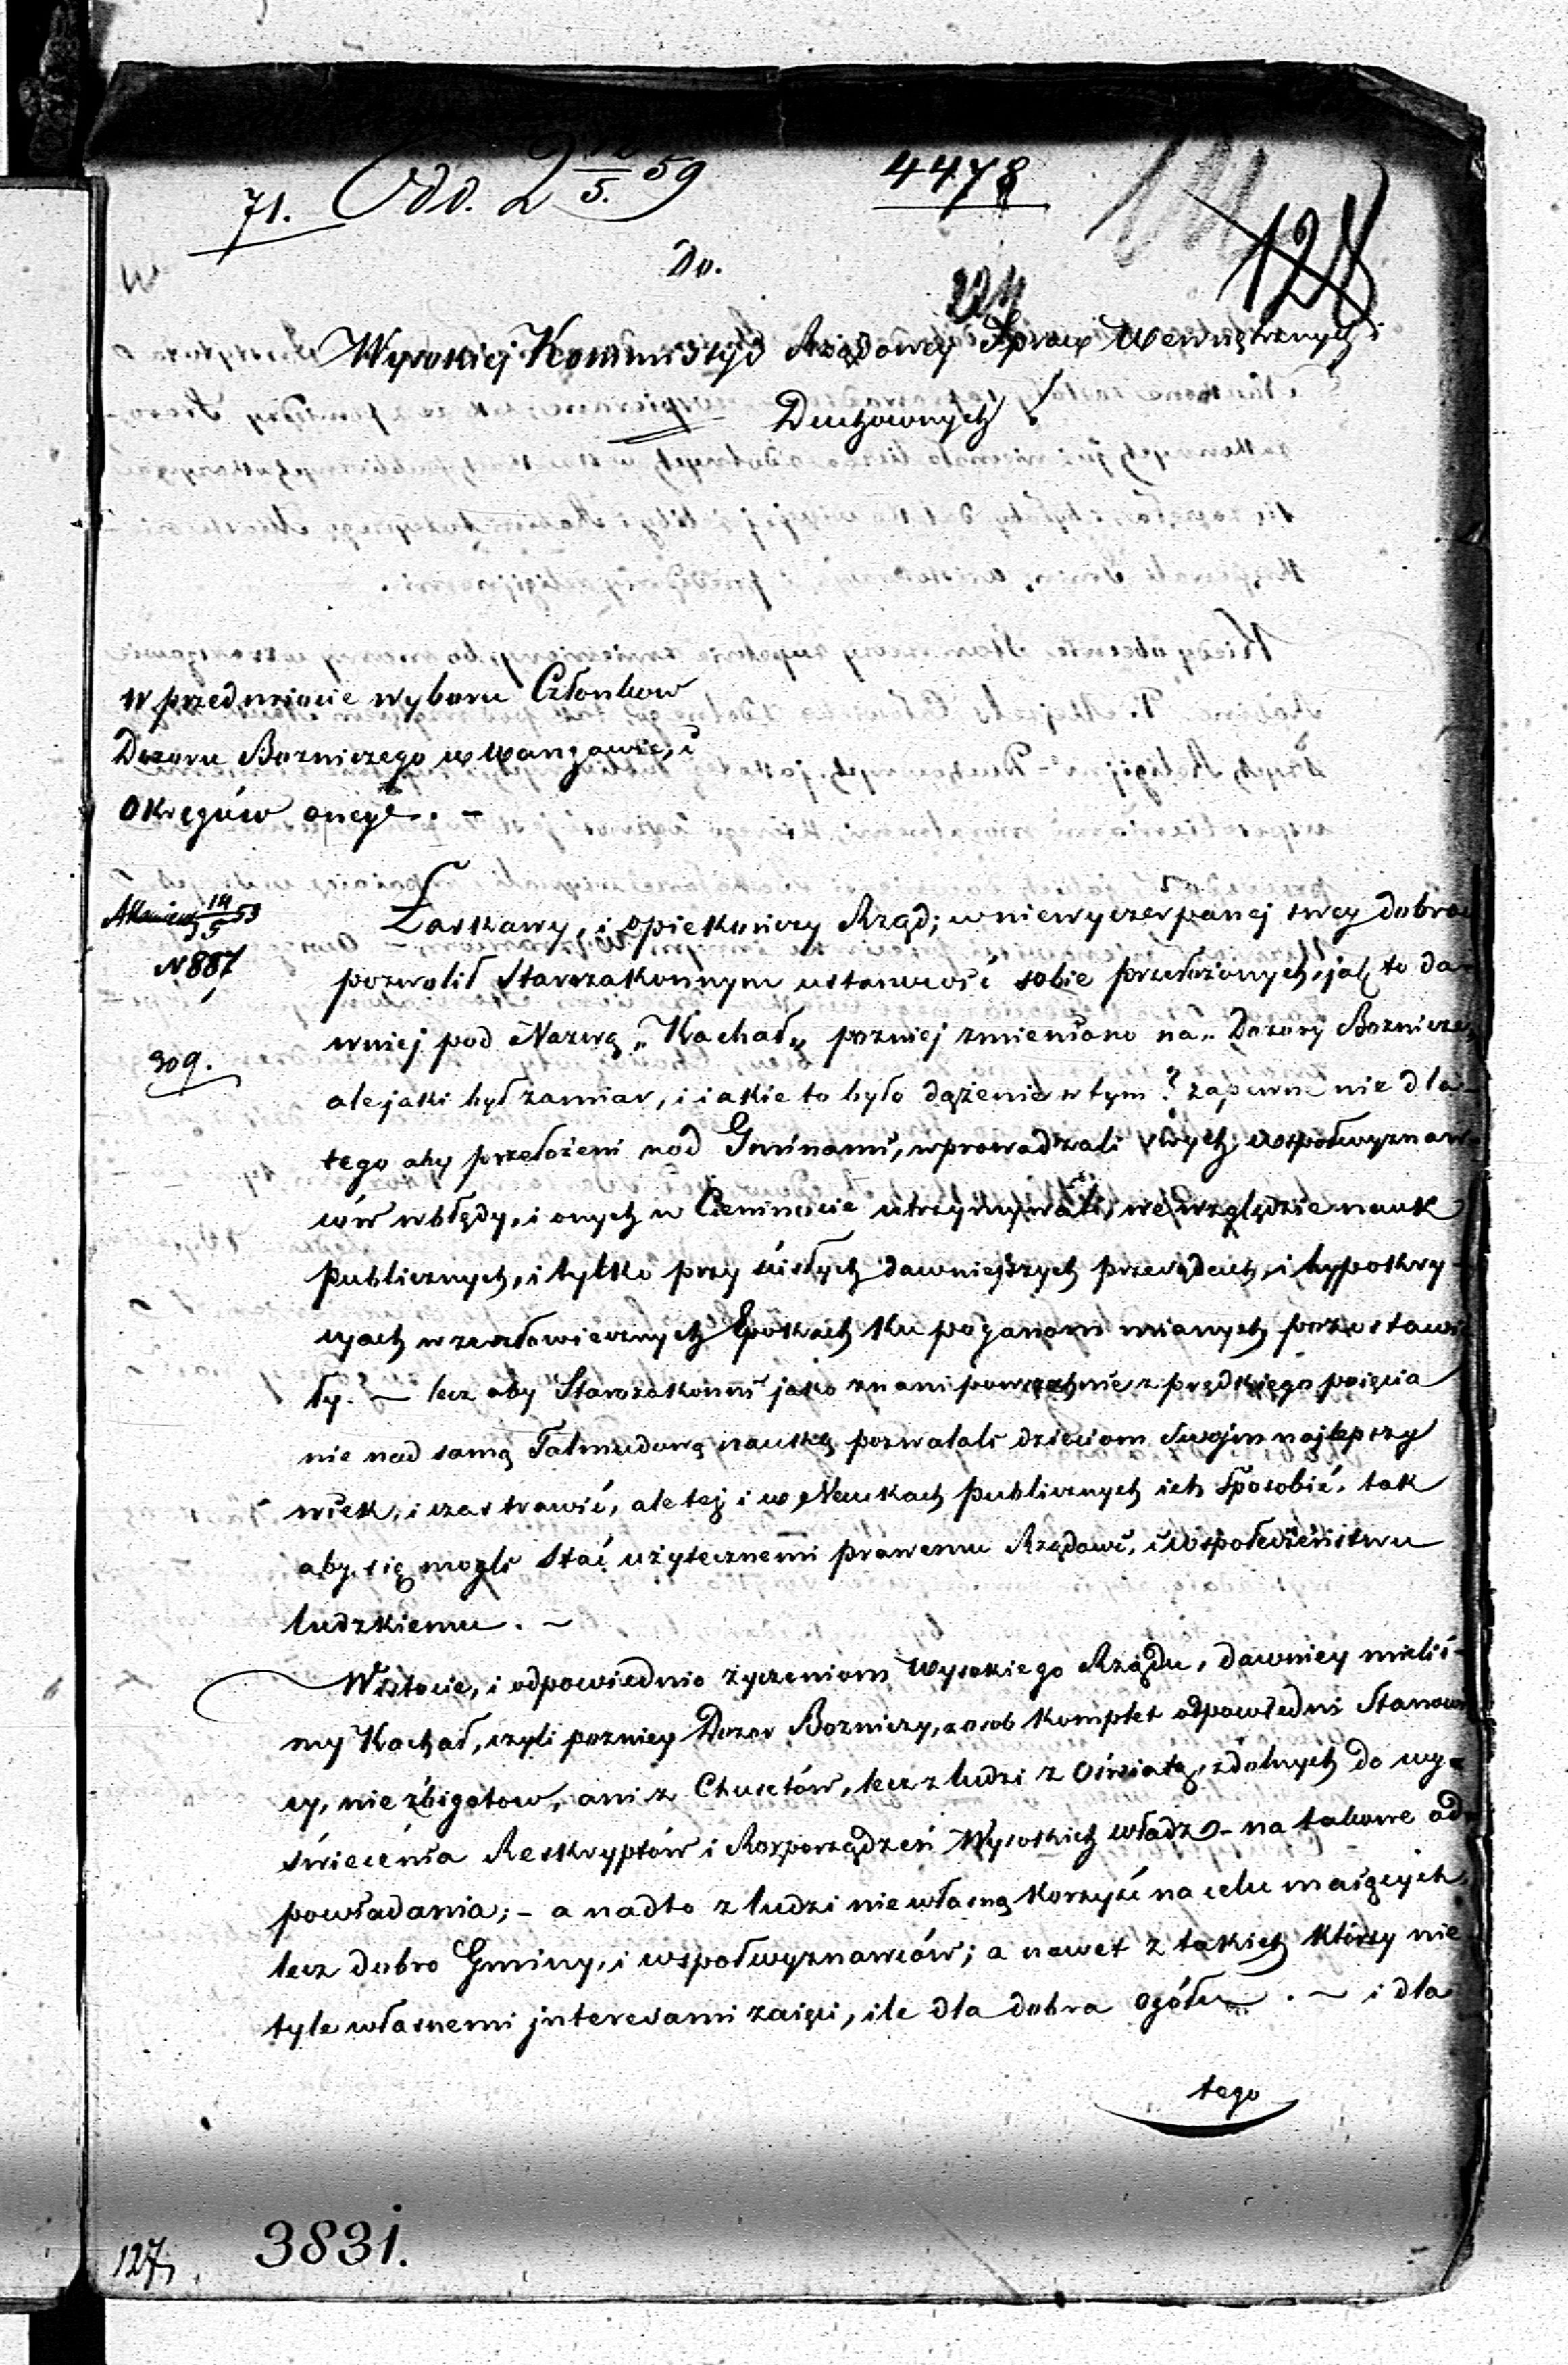 71. Odd. 2 5. 59
4478
128
Do.
Wysokiej Kommissyi Rządowey Spraw Wewnętrznych i
Duchownych!
W przedmiocie wyboru Członkow
Dozoru Bozniczego w
Okręgów onegż. -
14/5 53
N 887
309.
Łaskawy, i opiekuńczy Rząd; w niewyczerpanej swey dobroci
pozwolił Starozakonnym ustanwość sobie przełożonych, jak to da-
wniej pod Nazwą „Kachał„ pozniej zmieniono na „Dozory Boznicze„
ale jaki był zamiar, i iakie to było dążenie w tym? zapewne nie dla-
tego aby przełożeni nod Gminami, wprowadzali swych współwyznaw-
ców w błędy, i onych w Ciemnocie utrzymywali, we względzie nauk
publicznych, i tylko przy ścisłych dawniejszych przesądach, i hypokry-
zyach w zeszłowiecznych Epokach ku poganom mianych pozostawi
ły. — lecz aby Starozakonni jako znani powszechnie z prędkiego poięcia
nie nad samą Talmudową nauką pozwalali dzieciom Swojm najlepszy
wiek, i czas trawić, ale tej i w Naukach publicznych ich Sposobić, tak
aby się mogli Stać użytecznemi prawemu Rządowi, i współeczeństwu
ludzkiemu. —
W istocie, i odpowiednio życzeniom Wysokiego Rządu, dawniey mieliś-
my Kachał, czyli pozniey Dozor Bozniczy, z osob komplet odpowiedni Stanowi
cy, nie zbigotow, ani z Chusetów, lecz z ludzi z Oświatą, zdolnych do wy-
świecenia Reskryptów i Rozporządzeń Wysokich władz - na takowe od-
powładania; - a nadto z ludzi nie własną korzyść na celu maiących
lecz dobro Gminy, i współwyznawców; a nawet z takich którzy nie
tyle własnemi jnteresami zaięci, ile dla dobra ogółu. — i dla
tego
127
3831.